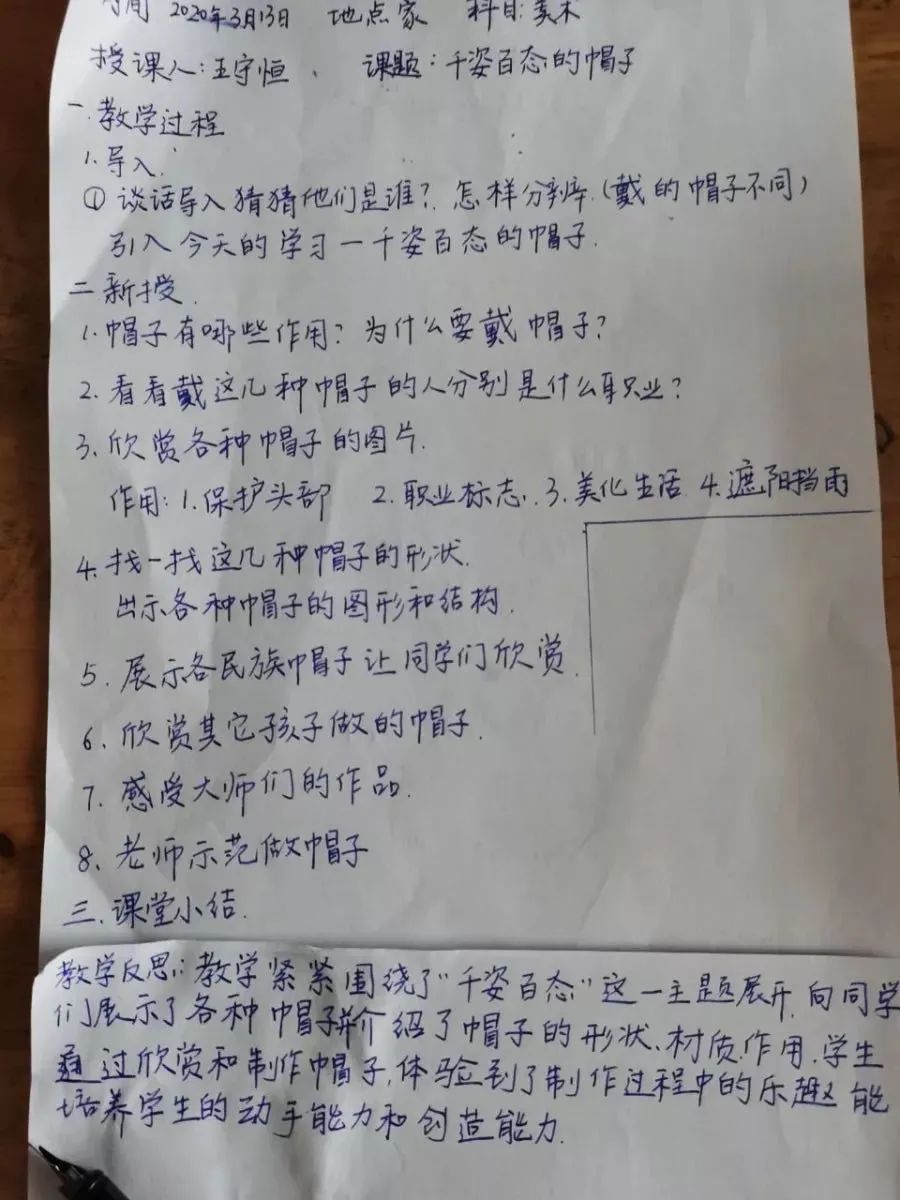 时间 2020年3月13日 地点家 科目:美术
授课人:王守恒、 课题:千姿百态的帽子
一.教学过程
1.导入.
① 谈话导入猜猜他们是谁?怎样分辨.(戴的帽子不同)
引入今天的学习一千姿百态的帽子.
二新授.
1.帽子有哪些作用?为什么要戴帽子?
2.看看戴这几种帽子的人分别是什么职业?
3.欣赏各种帽子的图片.
作用:1.保护头部 2.职业标志.3.美化生活 4.遮阳挡雨
4.找一找这几种帽子的形状.
出示各种帽子的图形和结构.
5.展示各民族帽子让同学们欣赏.
6.欣赏其它孩子做的帽子.
7.感受大师们的作品.
8.老师示范做帽子
三.课堂小结.
教学反思:教学紧紧围绕了"千姿百态"这一主题展开,向同学
们展示了各种帽子并介绍了帽子的形状、材质.作用.学生
通过欣赏和制作帽子,体验到了制作过程中的乐趣能
培养学生的动手能力和创造能力.